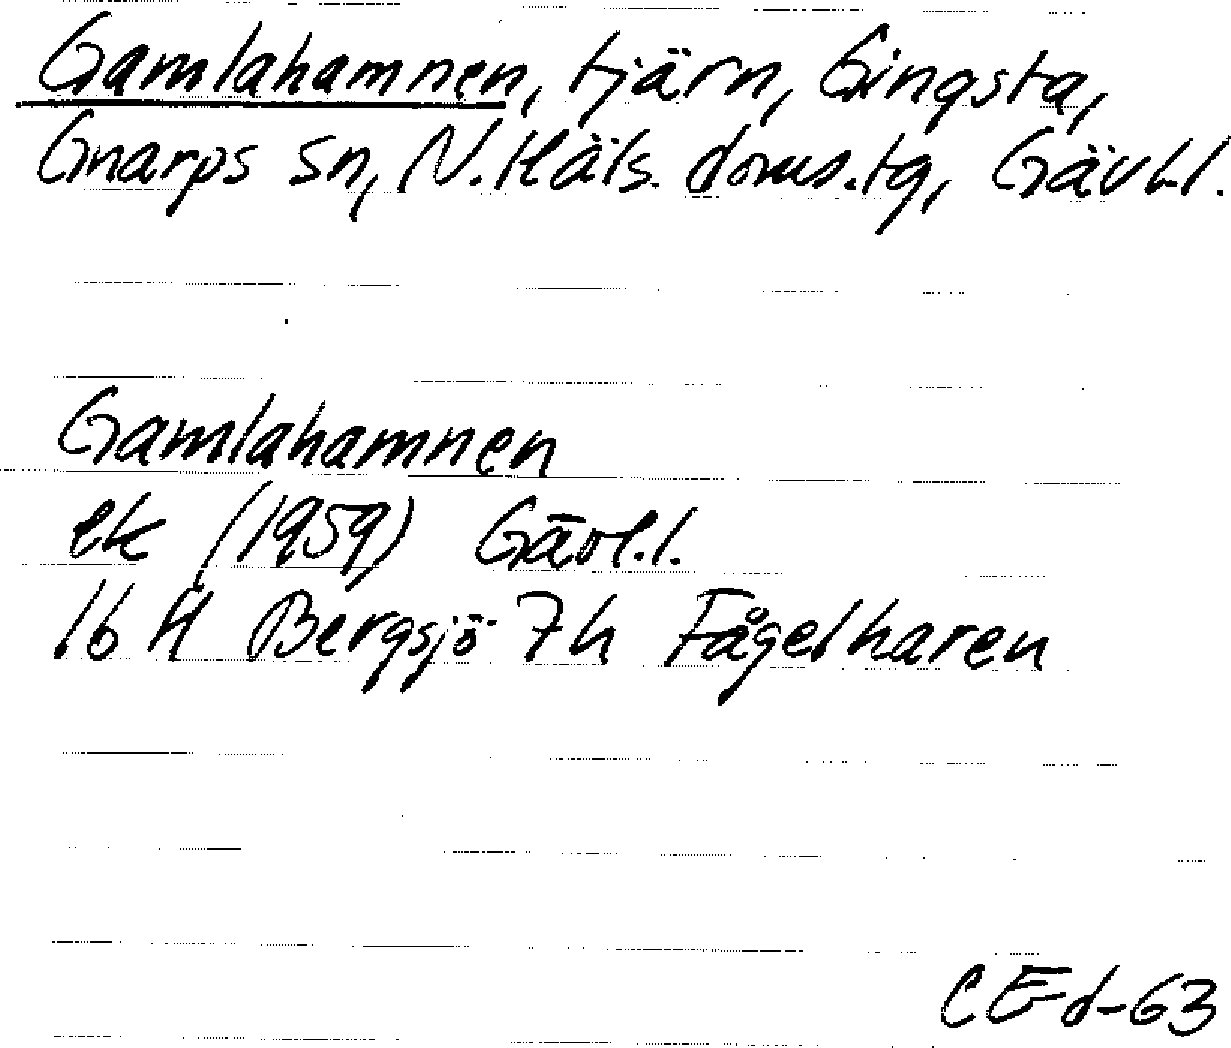 Gamlahamnen, tjärn, Gingsta,
Gnarps sn, N. Häls. doms.tg, Gävl.l.
Gamlahamnen
ek (1959) Gävl.l.
16 H Bergsjö 7h Fågelharen
CEd-63